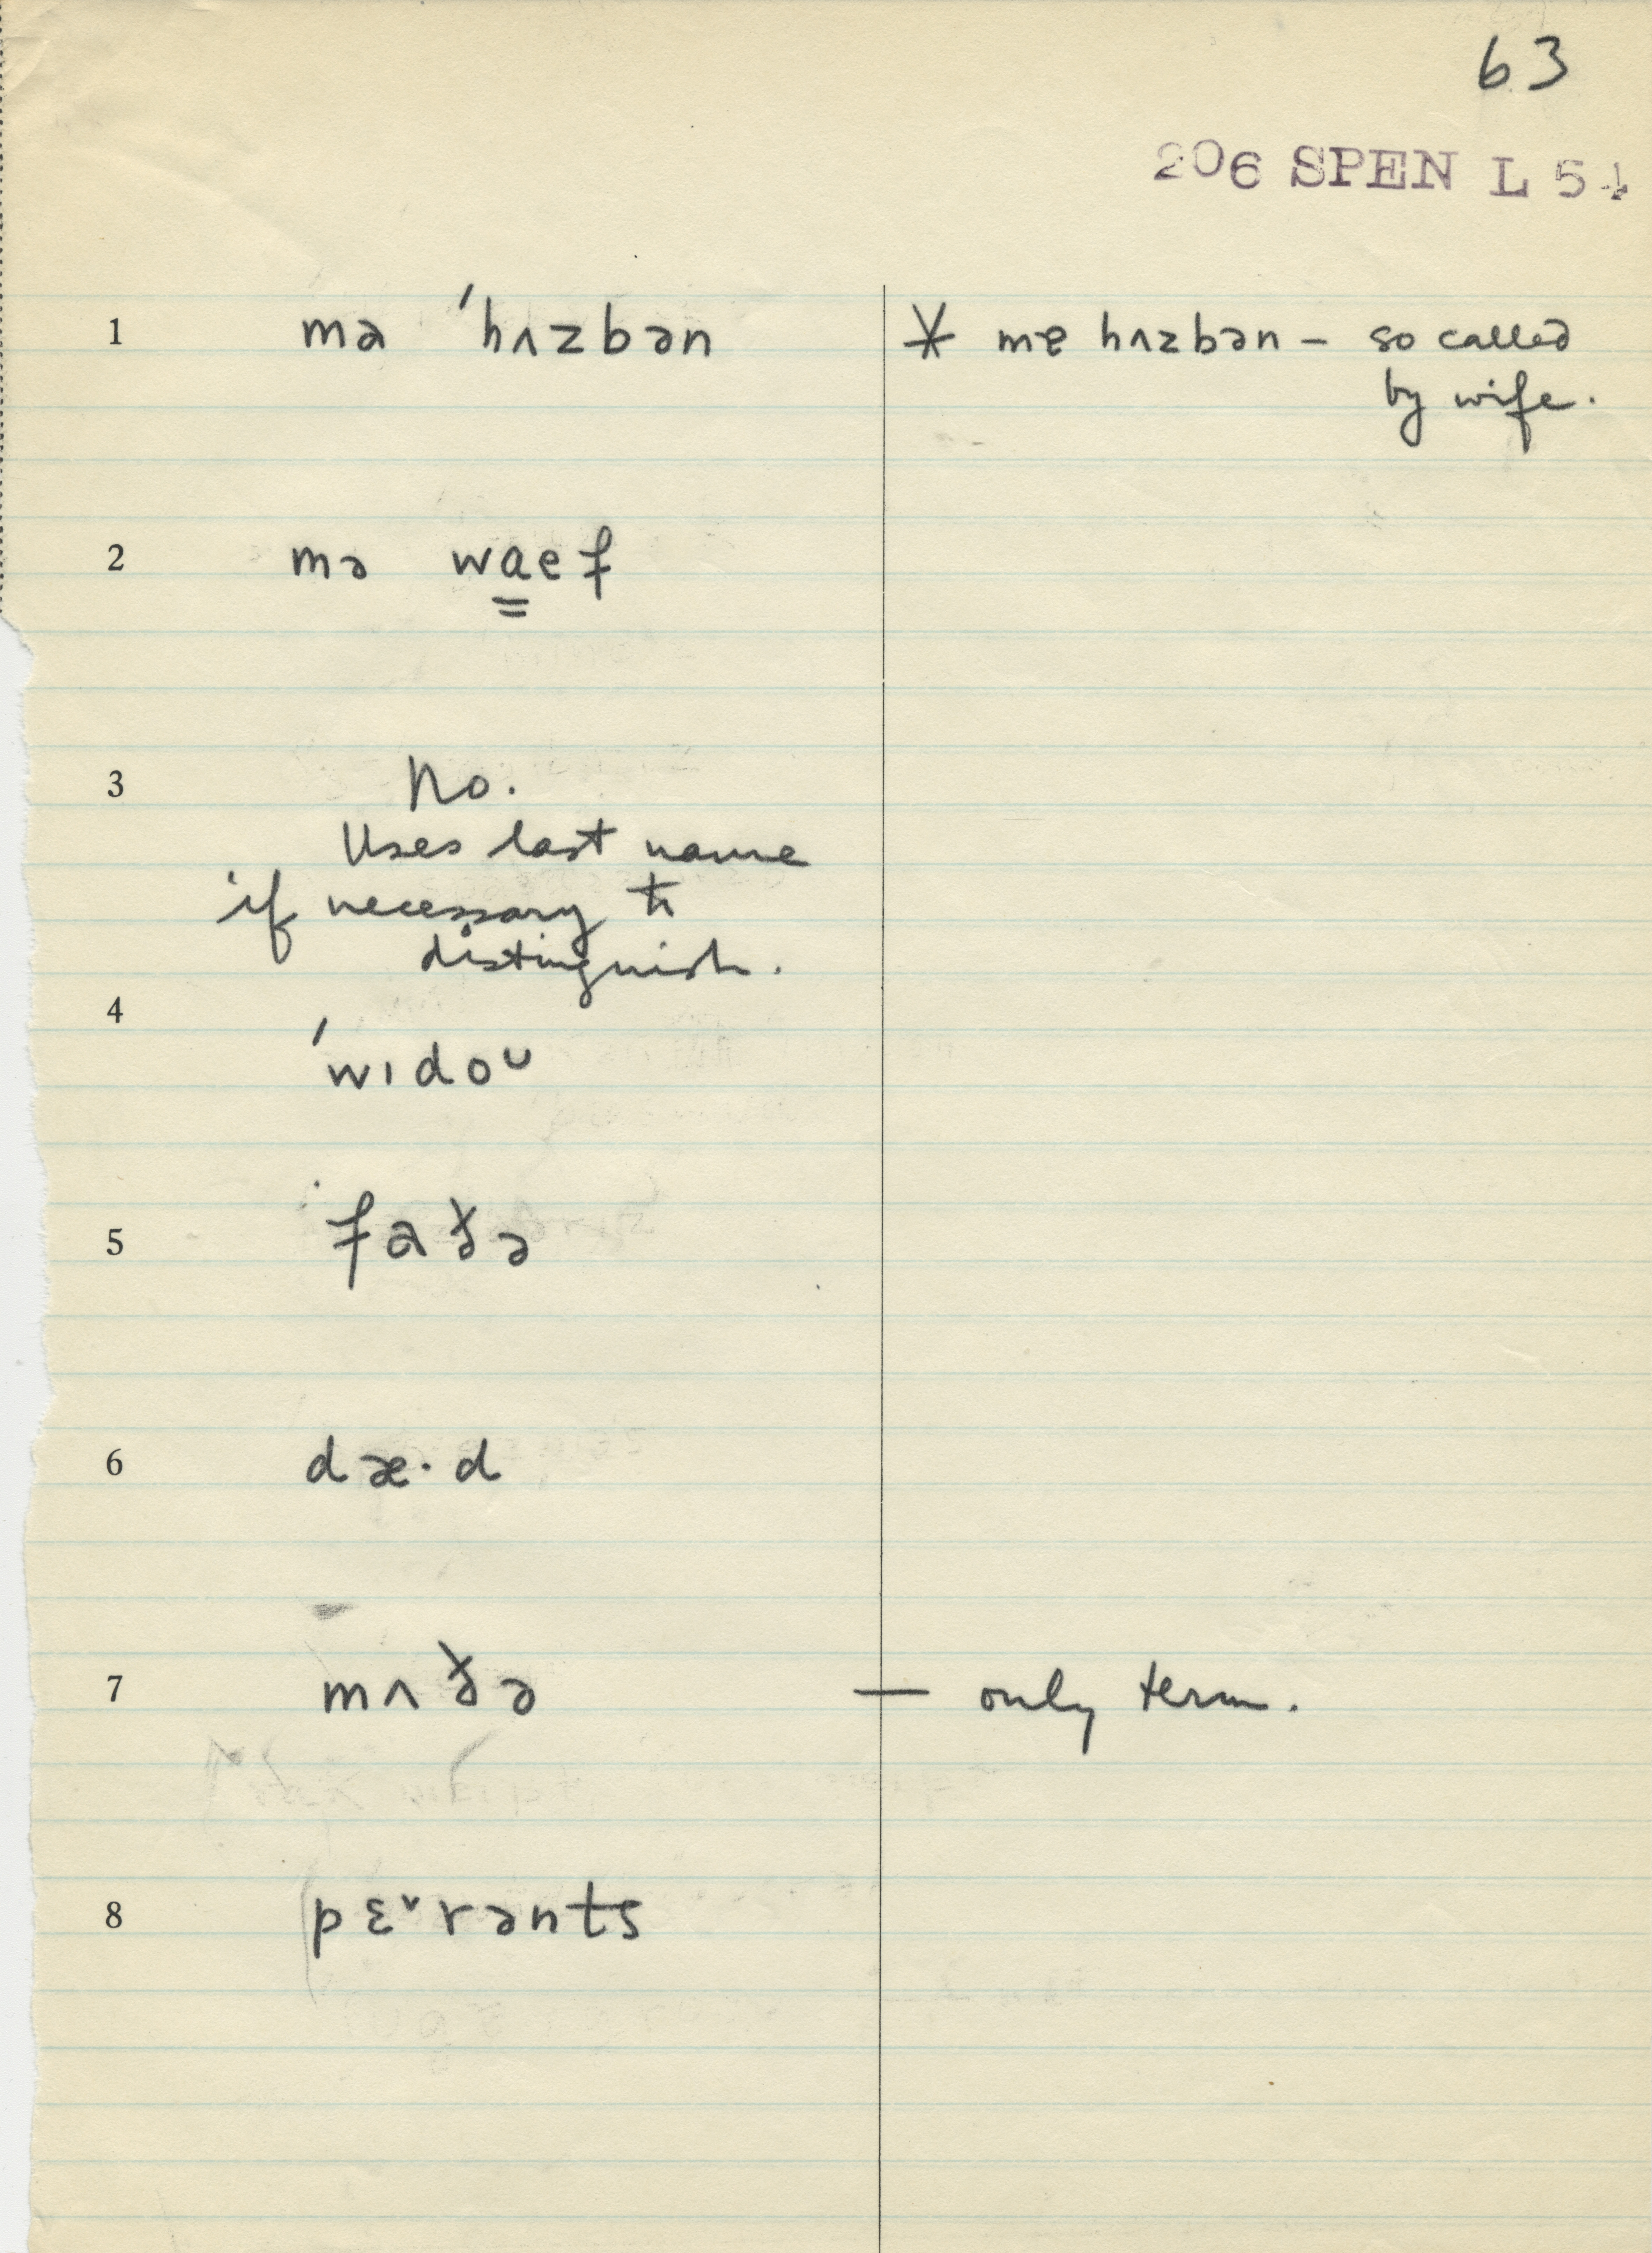 63
206 SPEN L 54
1 mə ˈhʌzbən * mɐ hʌzbən – so called
by wife.
2 mə waef
3 No.
Uses last name
if necessary to
distinguish.
4 ˈwɪdoᴜ
5 faðə
6 dæ·d
7 mʌðə — only term.
8 pɛˇrənts